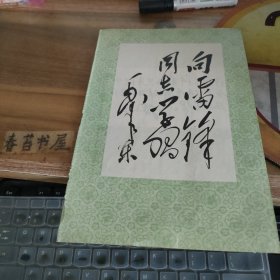 向雷锋
同志学习
毛泽东
春苔书屋